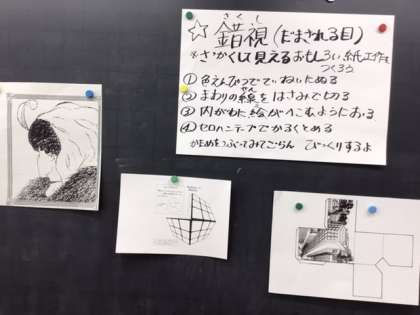 さくし
☆錯視(だまされる目)
*さかくしに見えるおもしろい紙工作を
つくろう
①色えんぴつでていねいにぬる
②まわりの線をはさみで切る
③内がわに絵がへこむようにおる
④セロハンテープでかるくとめる
かた目をつぶってみてごらん びっくりするよ